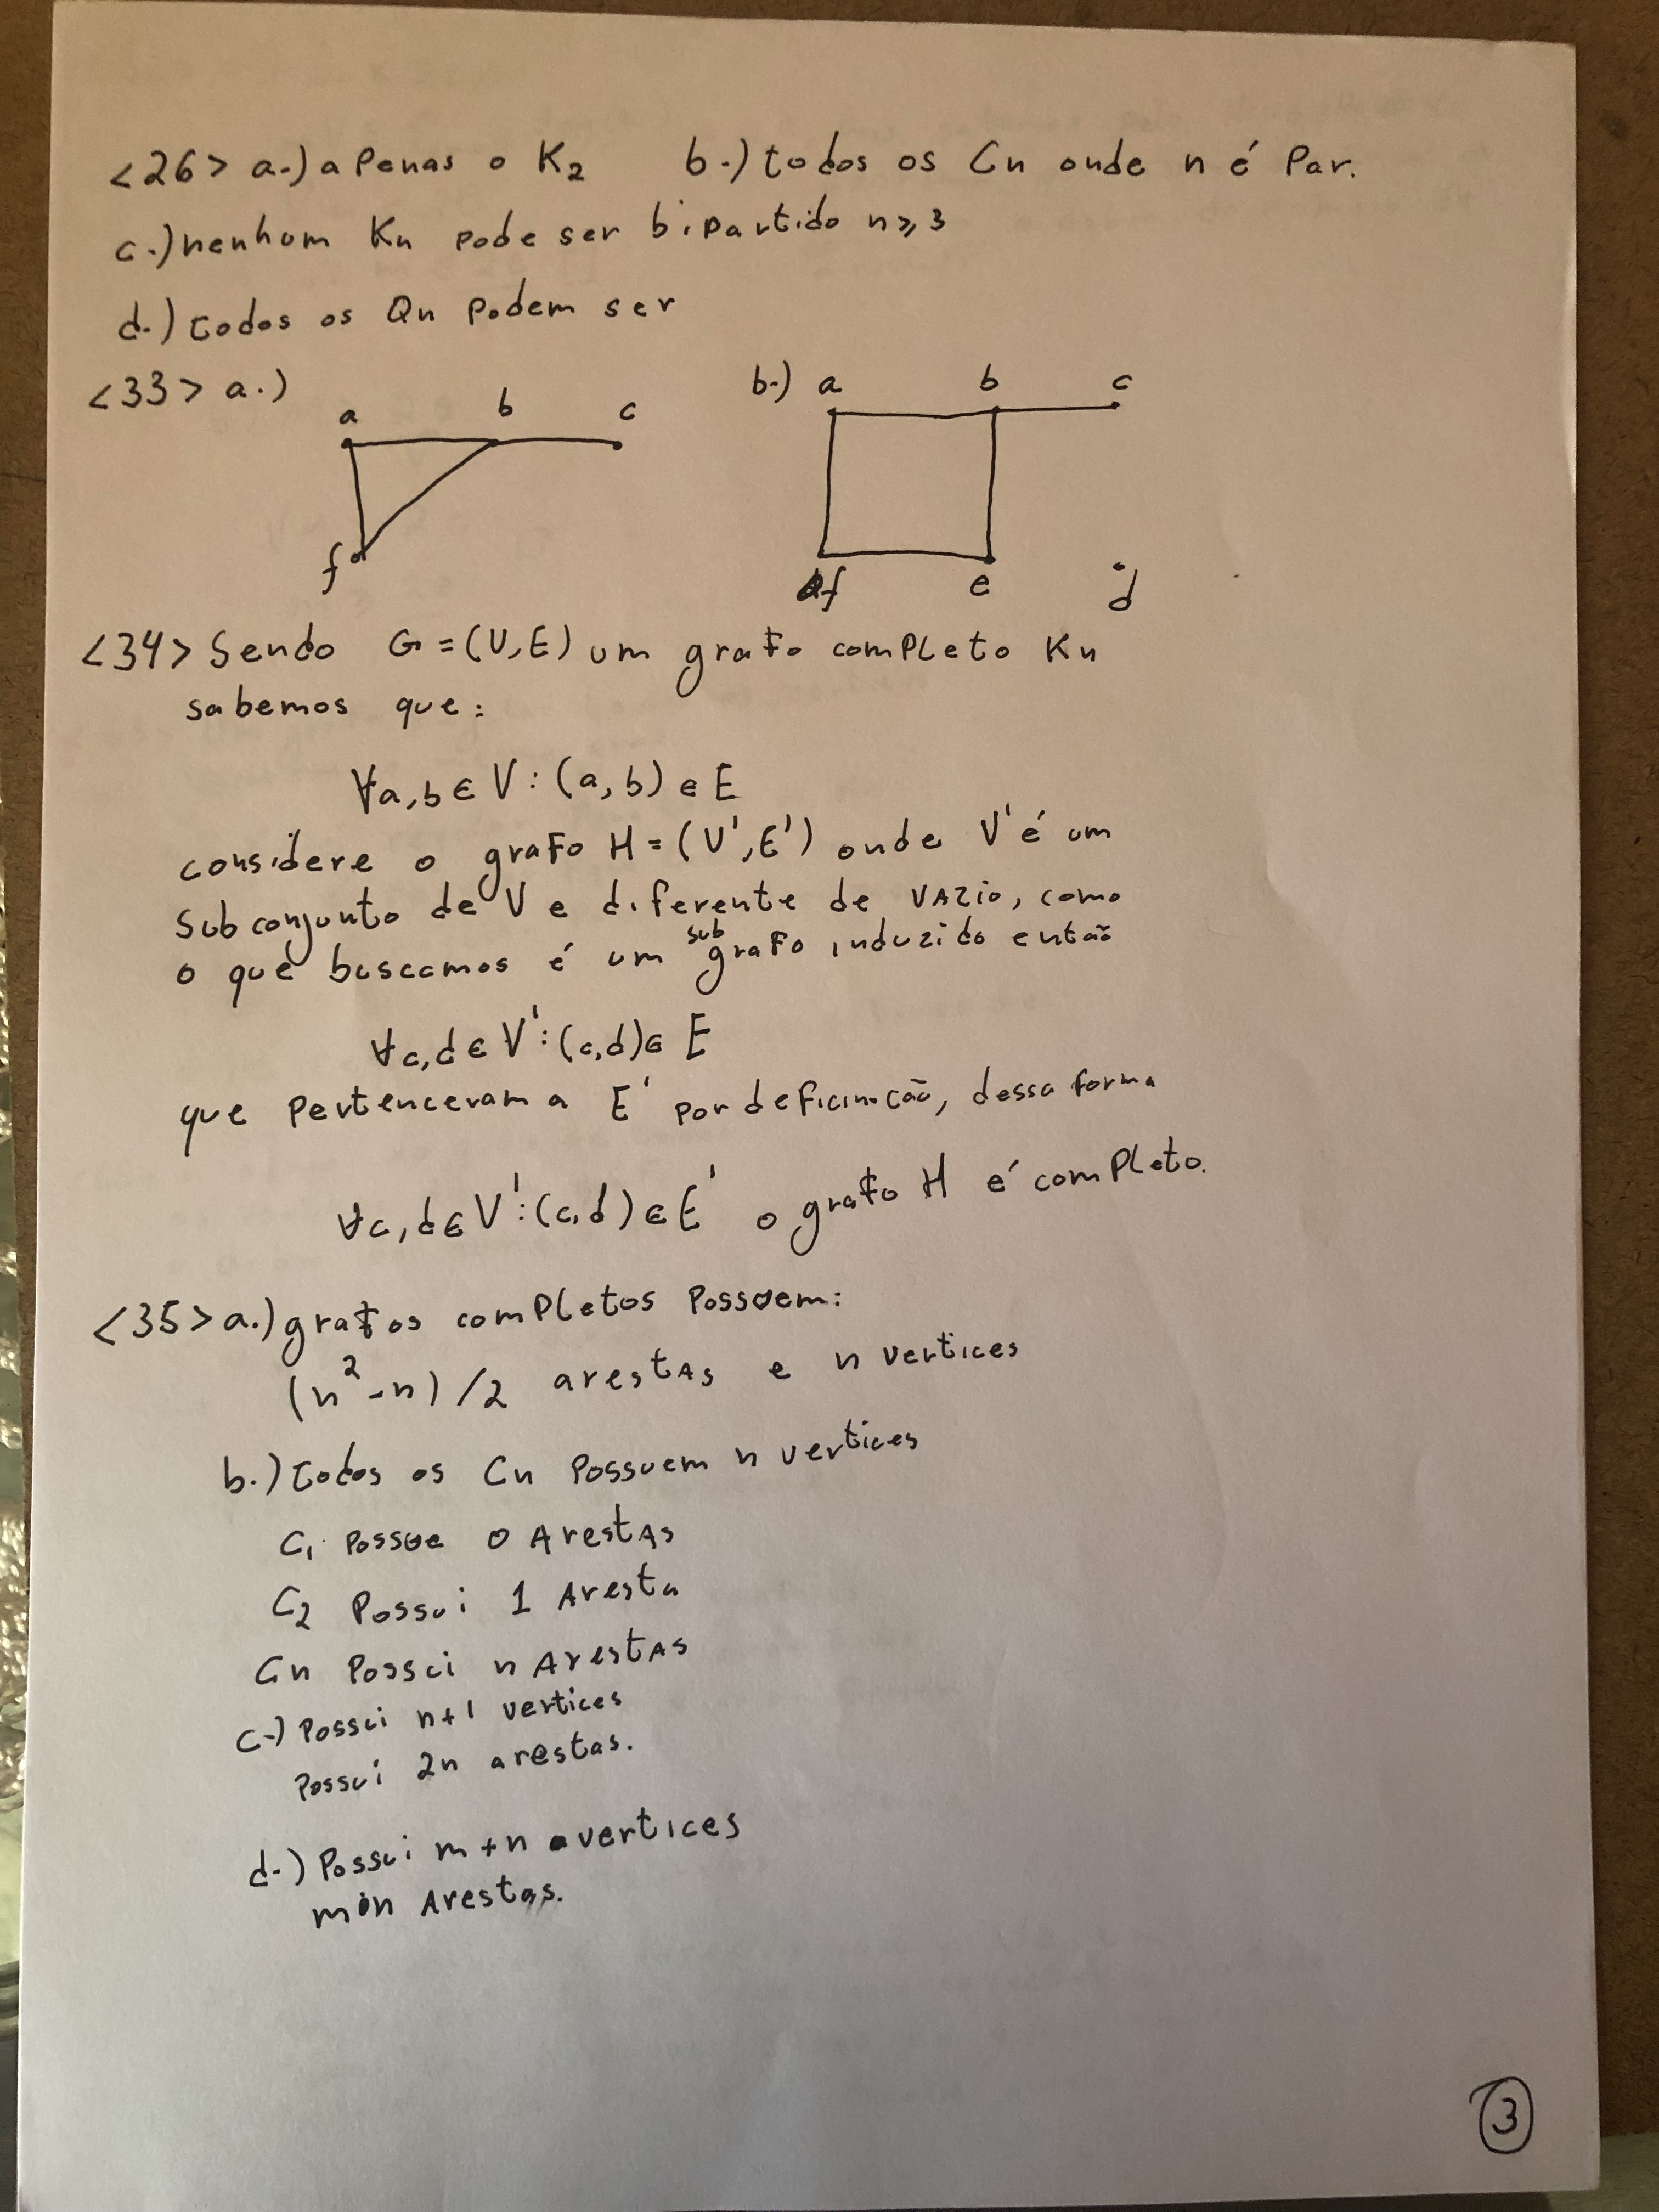 <26> a.) apenas o K2 b.) todos os Cn onde n é Par.
c.) nenhum Kn pode ser bipartido n≥3
d.) todos os Qn Podem ser
<33> a.) b.)
a b c a b c
f f e d
<34> Sendo G=(V,E) um grafo completo Kn
sabemos que:
∀a,b∈V:(a,b)∈E
considere o grafo H=(V',E') onde V' é um
subconjunto de V e diferente de VAZIO, como
o que buscamos é um subgrafo induzido então
∀c,d∈V':(c,d)∈E
que pertenceram a E' por deficinição, dessa forma
∀c,d∈V':(c,d)∈E' o grafo H é completo.
<35> a.) grafos completos Possuem:
(n²-n)/2 arestas e n vertices
b.) todos os Cn Possuem n vertices
C1 Possue 0 Arestas
C2 Possui 1 Aresta
Cn Possui n Arestas
c.) Possui n+1 vertices
Possui 2n arestas.
d.) Possui m+n vertices
m·n Arestas.
3